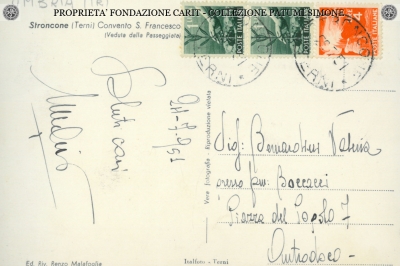 PROPRIETA' FONDAZIONE CARIT - COLLEZIONE PATUMI SIMONE
Stroncone (Terni) Convento S. Francesco
(Veduta dalla Passeggiata)
POSTE ITALIANE
POSTE ITALIANE
4
TERNI
TERNI
Saluti cari
Vera Fotografia - Riproduzione vietata
Sig. Bernardini
presso fam. Boccacci
Piazza del Popolo 7
Antrodoco
Ed. Riv. Renzo Malafoglia
Terni